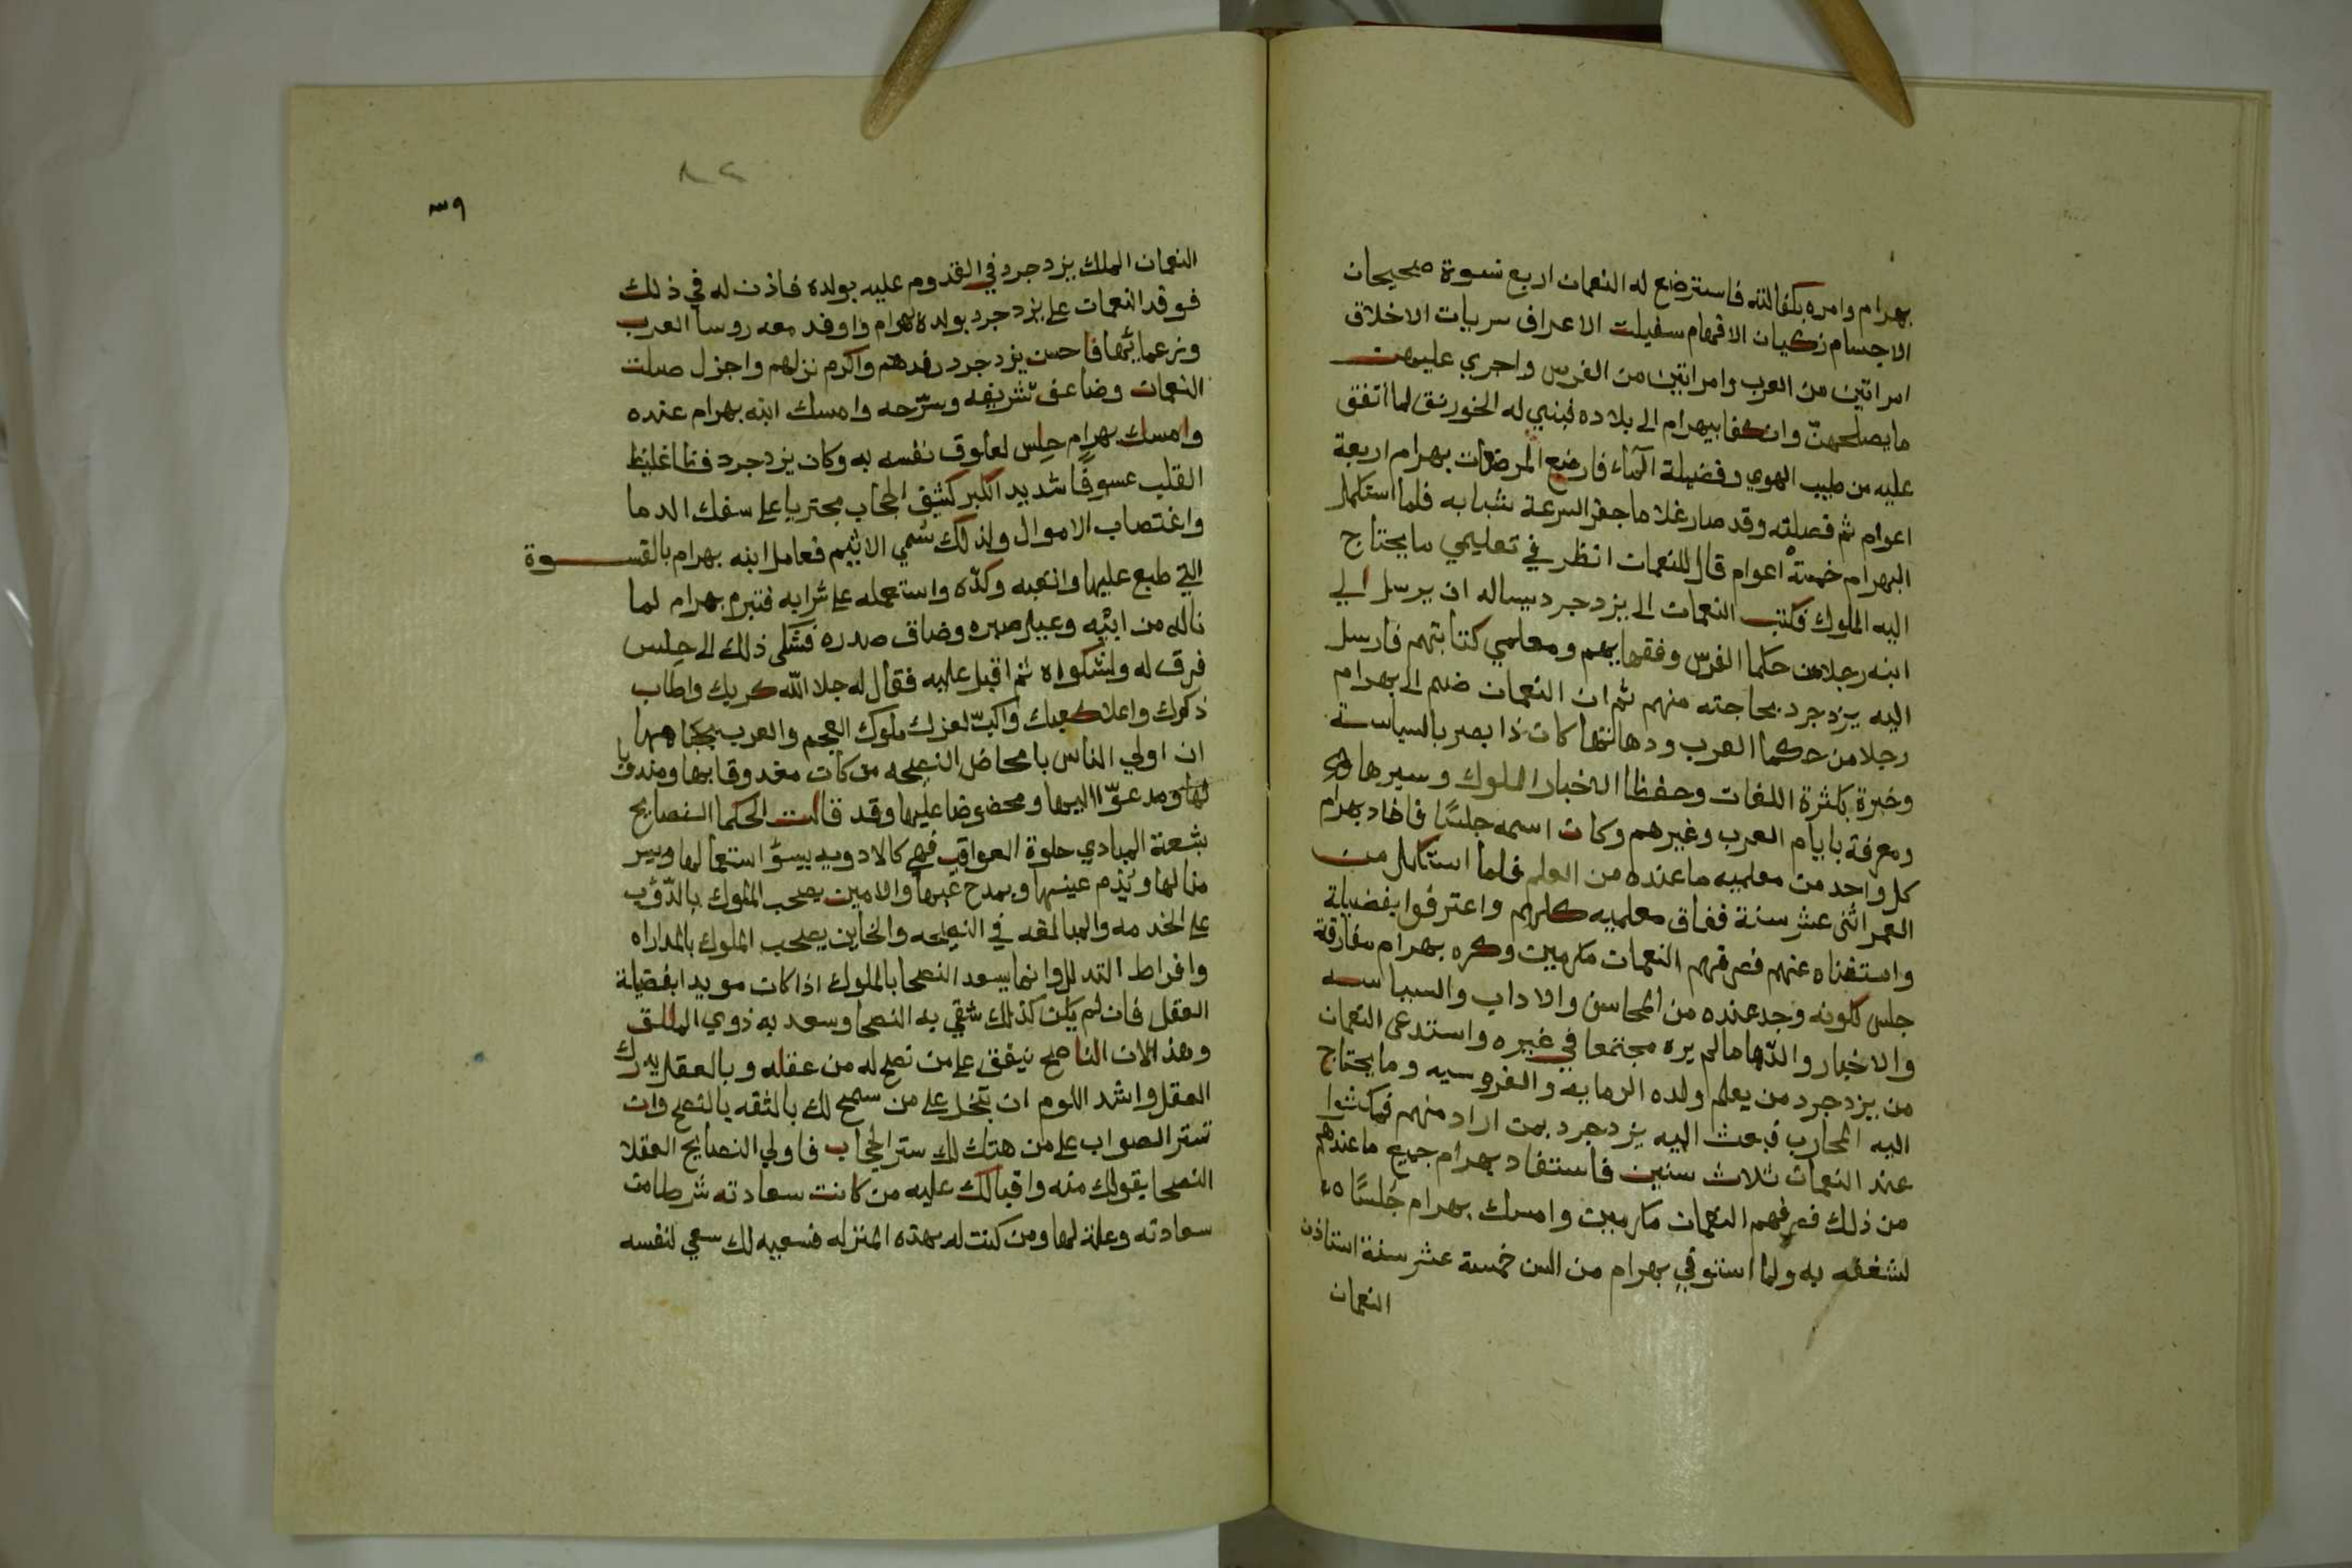 بهرام وامره بكفالته فاسترضع له النعمان اربع نسوة صحيحات
الاجسام زكيات الافهام سفيلت الاعراق سريات الاخلاق
امراتين من العرب وامراتين من الفرس واجري عليهن
ما يصلحهنّ وانكفا ببهرام الى بلاده فبني له الخورنق لما اتفق
عليه من طيب الهوي وفضيلة المآء فارضع المرضعات بهرام اربعة
اعوام ثم فصلته وقد صار غلاما جفرا لسرعة شبابه فلما استكمل
البهرام خمسة اعوام قال للنعمان انظر في تعليمي ما يحتاج
اليه الملوك فكتب النعمان الى يزدجرد يساله ان يرسل الي
ابنه رجلا من حكما الفرس وفقهايهم ومعلمي كتابتهم فارسل
اليه يزدجرد بحاجته منهم ثم ان النعمان ضم الى بهرام
رجلا من حكما العرب ودهاتها كان ذا بصر بالسياسة
وخبرة بكثرة اللغات وحفظا لاخبار الملوك وسيرها
ومعرفة بايام العرب وغيرهم وكان اسمه جلسًا فافاد بهرام
كل واحد من معلميه ما عنده من العلم فلما استكمل من
العمر اثني عشر سنة ففاق معلميه كلهم واعترفوا بفضيلة
واستغناه عنهم فصرفهم النعمان مكرمين وكره بهرام مفارقة
جلس لكونه وجد عنده من المحاسن والاداب والسياسه
والاخبار والدّها ما لم يره مجتمعا في غيره واستدعى النعمان
من يزدجرد من يعلم ولده الرمايه والفروسيه وما يحتاج
اليه المحارب فبعث اليه يزدجرد بمن اراد منهم فمكثوا
عند النعمان ثلاث سنين فاستفاد بهرام جميع ما عندهم
من ذلك فصرفهم النعمان مكرمين وامسك بهرام جلسًا
لشغفه به ولما استوفي بهرام من السن خمسة عشر سنة استاذن
النعمان
٣٩
النعمان الملك يزدجرد في القدوم عليه بولده فاذن له في ذلك
فوفد النعمان على يزدجرد بولده بهرام واوفد معه روسا العرب
وزعمائها فاحسن يزدجرد رفدهم واكرم نزلهم واجزل صلت
النعمان وضاعف تشريفه وسرّحه وامسك ابنه بهرام عنده
وامسك بهرام حِلس لعلوق نفسه به وكان يزدجرد فظا غليظ
القلب عسوفًا شديد الكبر كثيف الحجاب مجتريا على سفك الدما
واغتصاب الاموال ولذلك سُمي الاثيم فعامل ابنه بهرام بالقسوة
التي طبع عليها واتعبه وكدّه واستعمله على شرابه فتبرم بهرام لما
ناله من ابيه وعيل صبره وضاق صدره فشكى ذلك الى حِلس
فرق له ولشكواه ثم اقبل عليه فقال له جلا الله كربك واطاب
ذكرك واعلا كعبك واكبّ لعزك ملوك العجم والعرب بجباهها
ان اولي الناس بامحاض النصيحه من كان مغدوقا بها ومندوبا
لها ومدعوّا اليها ومحضوضا عليها وقد قالت الحكما النصايح
بشعة المبادي حلوة العواقب فهي كالادويه يسوٌ استعمالها ويسر
منالها ويُذم عينها ويمدح غبها والامين يصحب الملوك بالدّؤب
على الخدمه والمبالغه في النصيحه والخاين يصحب الملوك بالمداراه
وافراط التذلل وانما يسعد النصحا بالملوك اذا كان مويدا بفضيلة
العقل فان لم يكن كذلك شقي به النصحا وسعد به ذوي الملق
وهذا لان الناصح ينفق على من نصح له من عقله وبالعقل يدرك
العقل واشد اللوم ان تبخل على من سمح لك بالثقه بالنصح وان
تستر الصواب على من هتك لك ستر الحجاب فاولي النصايح العقلا
النصحا بقولك منه واقبالك عليه من كانت سعادته شرطا من
سعادته وعلة لها ومن كنت له بهذه المنزله فسعيه لك سعي لنفسه